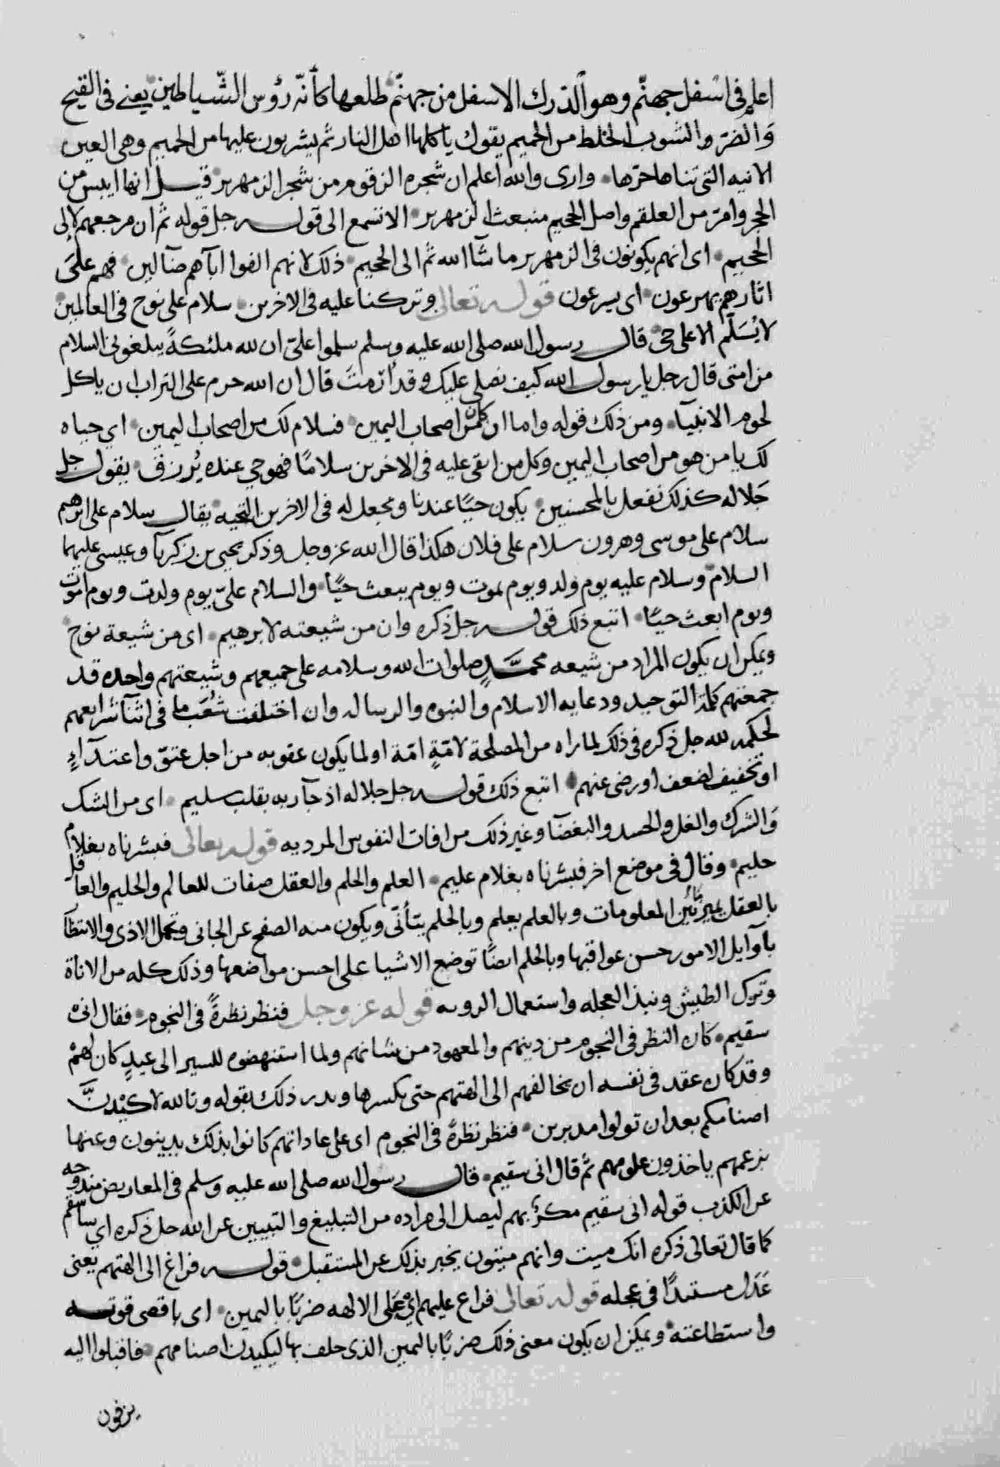 اعلم في اسفل جهنم وهو الدرك الاسفل من جهنم طلعها كأنه رؤس الشياطين يعني في القبح
والضر والشوب الخلط من الحميم يقول ياكلها اهل النار ثم يشربون عليها من الحميم وهي العين
الانيه التي تناها حرها وارى والله اعلم ان شجره الزقوم من شجر الزمهرير قيل انها ايبس من
الحجر وامر من العلقم واصل الجحيم منبعث الزمهرير الا تسمع الى قوله جل قوله ثم ان مرجعهم لإلى
الجحيم اى انهم يكونون في الزمهرير ما شآ الله ثم الى الجحيم ذلك لانهم الفوا ابآهم ضآلين فهم على
اثارهم يهرعون اى يسرعون قوله تعالى وتركنا عليه في الاخرين سلام على نوح في العالمين
لا يُسَلّم الا على حي قال رسول الله صلى الله عليه وسلم سلموا عليّ ان لله ملئكةً يبلغوني السلام
من امتي قال رجل يا رسول الله كيف نصلي عليك وقد ارمتَ قال ان الله حرم على التراب ان ياكل
لحوم الانبيآء ومن ذلك قوله واما ان كان من اصحاب اليمين فسلام لك من اصحاب اليمين اي حياه
لك يا من هو من اصحاب اليمين وكل من ابقى عليه في الاخرين سلامًا فهو حي عنده يُرزق بقول جل
جلاله كذلك نفعل بالمحسنين يكون حيًا عندنا ونجعل له في الاخرين التحيه يقال سلام على ابرهيم
سلام على موسى وهرون سلام على فلان هكذا قال الله عز وجل وذكر يحيى بن زكريآ وعيسى عليهما
السلام وسلام عليه يوم ولد ويوم يموت ويوم يبعث حيًا والسلام عليّ يوم ولدت ويوم اموت
ويوم ابعث حيًا اتبع ذلك قوله جل ذكره وان من شيعته لابرهيم اى من شيعة نوح
ويمكن ان يكون المراد من شيعه محمدٍ صلوات الله وسلامه على جميعهم وشيعتهم واحده قد
جمعتهم كلمة التوحيد ودعايه الاسلام والنبوه والرساله وان اختلفت شُعَب ما في اثنآ شرايعهم
لحكمه لله جل ذكره في ذلك لما راه من المصلحة لامّةٍ امّة او لما يكون عقوبه من اجل عتوّ واعتدآءٍ
او تخفيف لضعف او رضى عنهم اتبع ذلك قوله جل جلاله اذ جآ ربه بقلب سليم اى من الشك
والشرك والغل والحسد والبغضآ وغير ذلك من افات النفوس المرديه قوله تعالى فبشرناه بغلام
حليم وقال في موضع اخر فبشرناه بغلام عليم العلم والحلم والعقل صفات للعالم والحليم والعاقل
بالعقل يميز بين المعلومات وبالعلم يعلم وبالحلم يتأنّى ويكون منه الصفح عن الجاني وتحمل الاذى والانتظار
بأوايل الامور حسن عواقبها وبالحلم ايضًا توضع الاشيا على احسن مواضعها وذلك كله من الاناة
وترك الطيش ونبذ العجله واستعمال الرويه قوله عز وجل فنظر نظرةً في النجوم فقال انى
سقيم كان النظر في النجوم من دينهم والمعهود من شانهم ولما استنهضوه للسير الى عيدٍ كان لهمْ
وقد كان عقد في نفسه ان يخالفهم الى الهتهم حتى يكسرها وبدر ذلك بقوله وتالله لأكيدنَّ
اصنامكم بعد ان تولوا مدبرين فنظر نظرةً في النجوم اى على عاداتهم كانوا بذلك يدينون وعنها
بزعمهم ياخذون علومهم ثم قال انى سقيم قال رسول الله صلى الله عليه وسلم في المعاريض مندوحه
عن الكذب قوله انى سقيم مكرٌ بهم ليصل الى مراده من التبليغ والتبيين عن الله جل ذكره اي ساسقم
كما قال تعالى ذكره انك ميت وانهم ميتون يخبر بذلك عن المستقبل قوله فراغ الى الهتهم يعنى
عَدَل مستبدًا في عجله قوله تعالى فراغ عليهم اي على الالهه ضربًا باليمين اى باقصى قوته
واستطاعته ويمكن ان يكون معنى ذلك ضربًا باليمين الذى حلف بها ليكيدن اصنامهم فاقبلوا اليه
يزفون